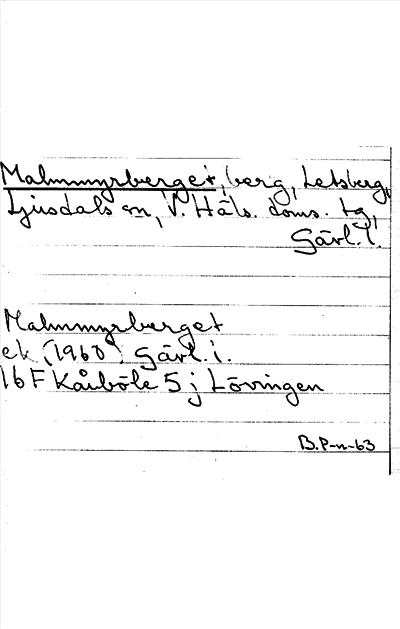 Malmmyrberget, berg, Letsberg,
Ljusdals sn, V. Häls. doms. tg,
Gävl. l.
Malmmyrberget
ek. (1960) Gävl. l.
16 F Kårböle 5 j Lövingen
B.P-n-63